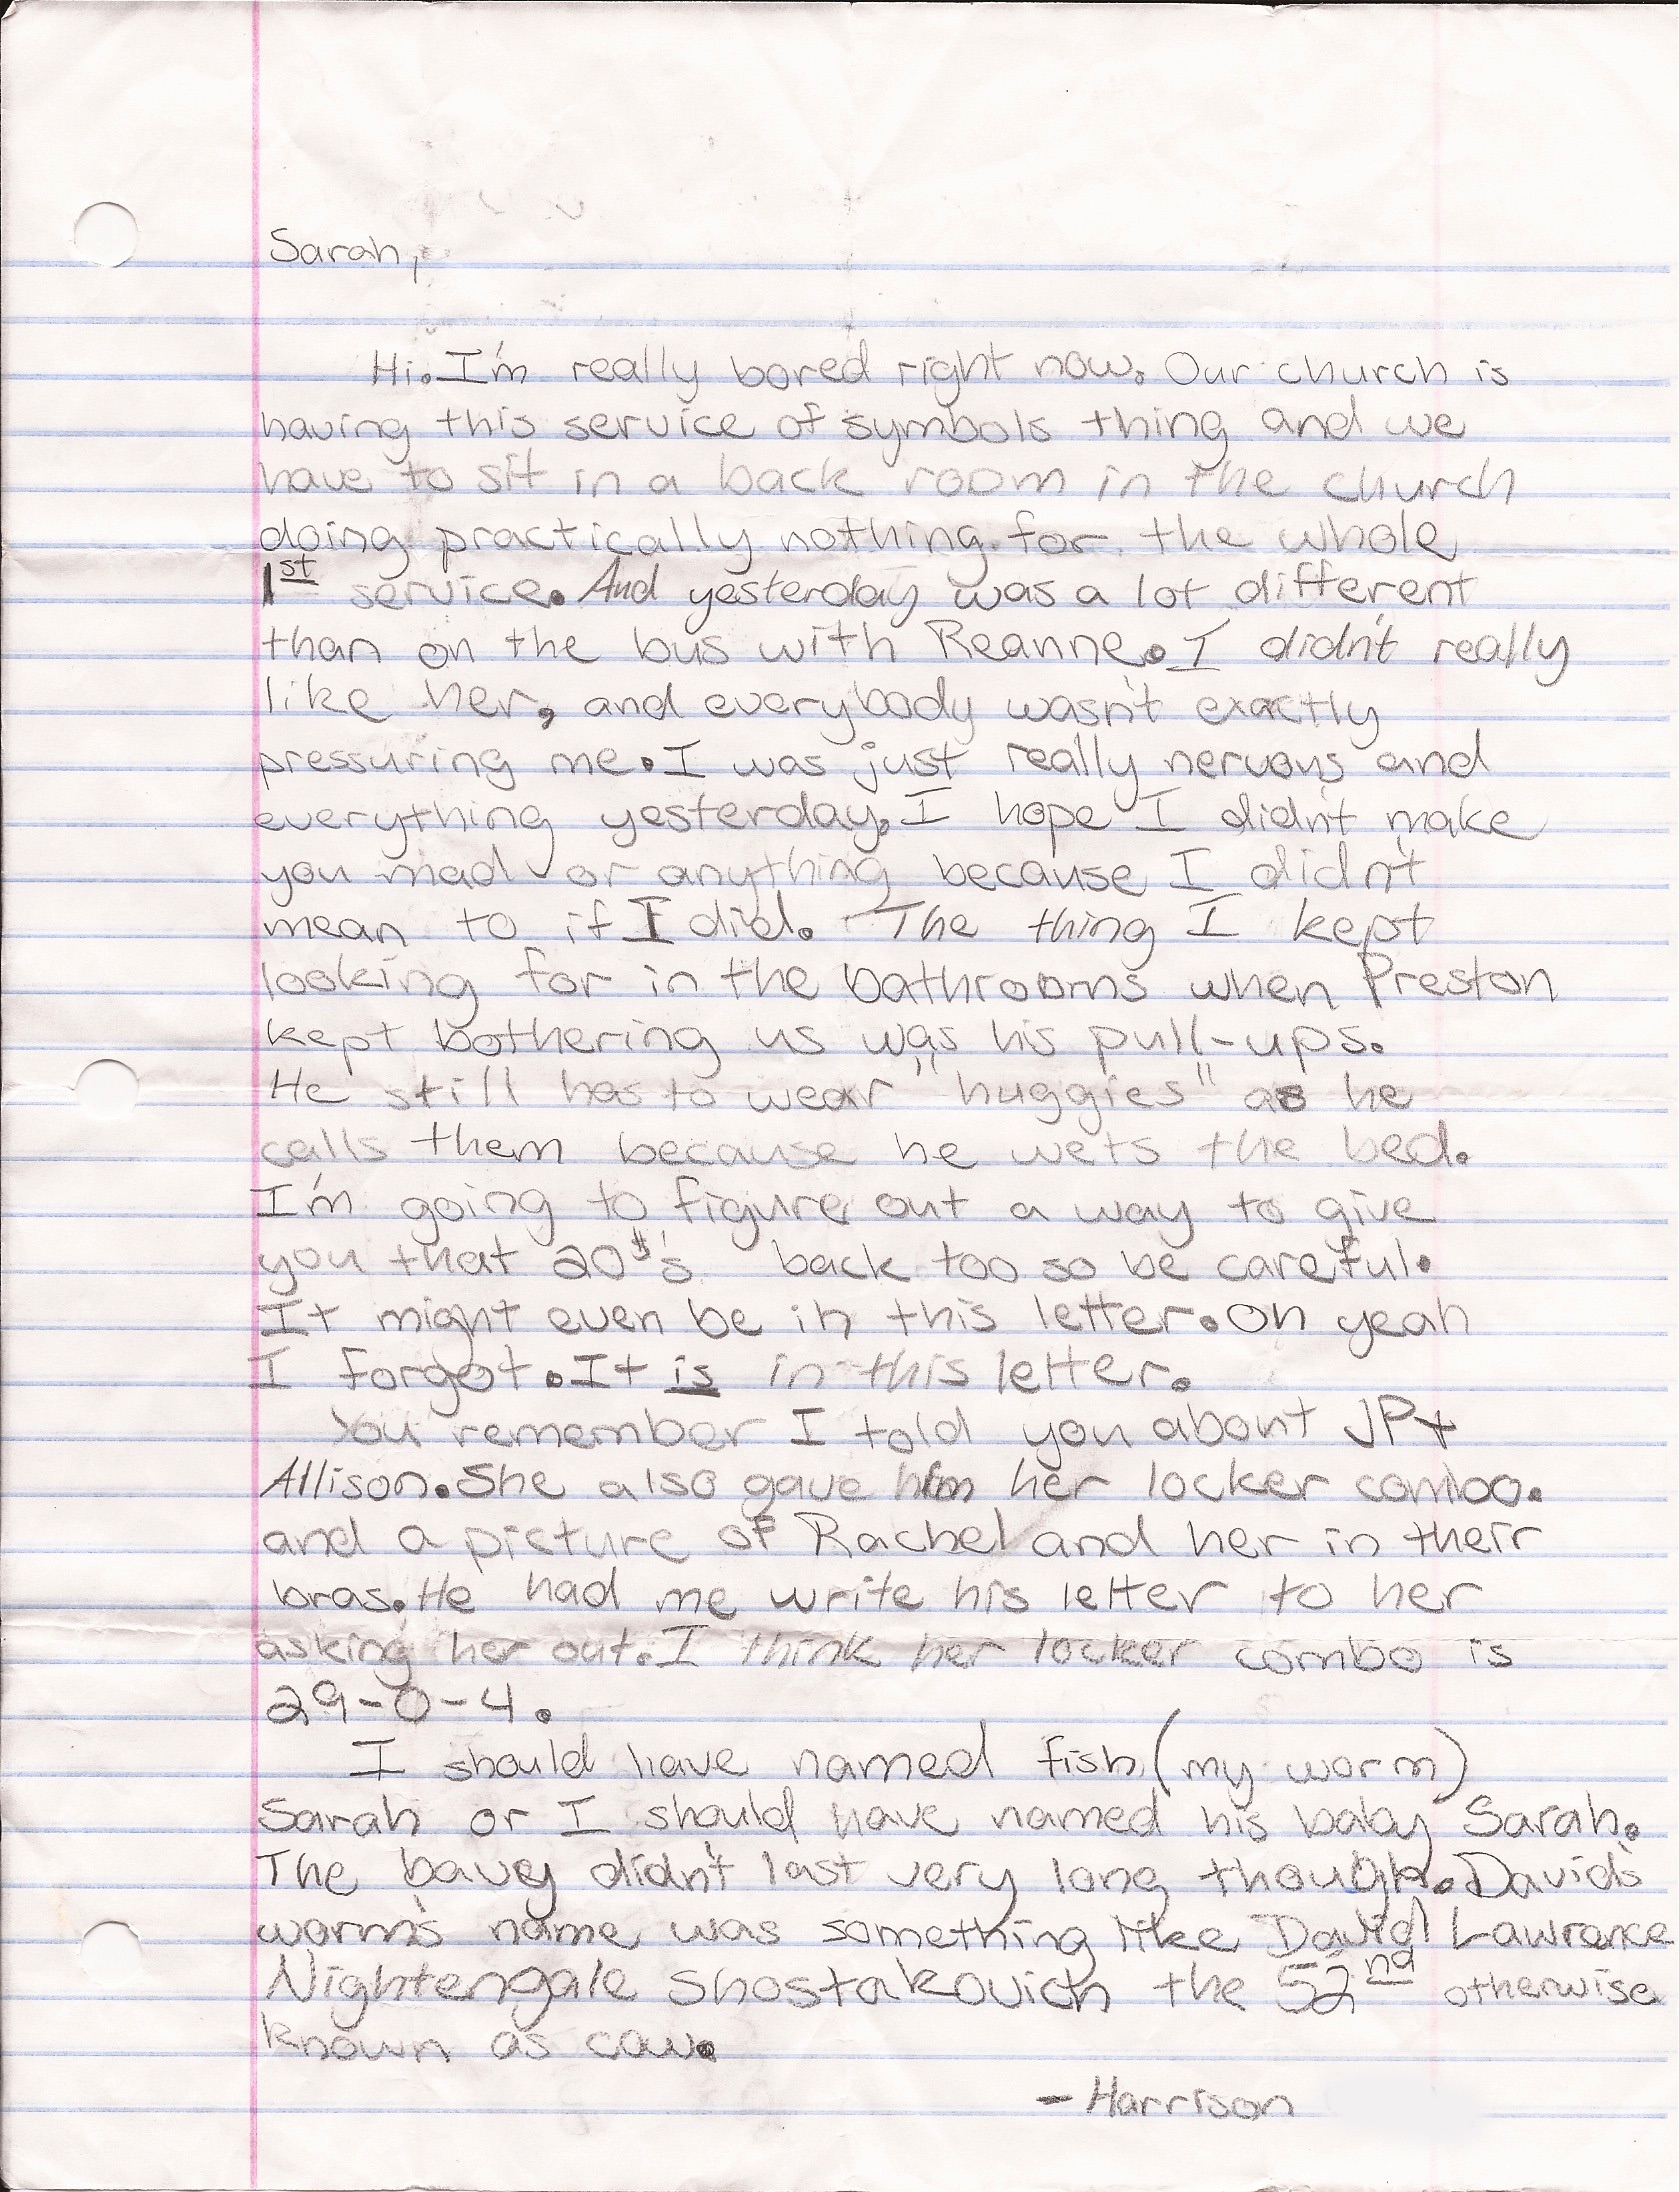 Sarah,
Hi. I'm really bored right now. Our church is
having this service of symbols thing and we
have to sit in a back room in the church
doing practically nothing for the whole
1st service. And yesterday was a lot different
than on the bus with Reanne. I didn't really
like her, and everybody wasn't exactly
pressuring me. I was just really nervous and
everything yesterday. I hope I didn't make
you mad or anything because I didn't
mean to if I did. The thing I kept
looking for in the bathrooms when Preston
kept bothering us was his pull-ups.
He still has to wear "huggies" as he
calls them because he wets the bed.
I'm going to figure out a way to give
you that 20$'s back too so be careful.
It might even be in this letter. Oh yeah
I forgot. It is in this letter.
You remember I told you about JP +
Allison. She also gave him her locker combo.
and a picture of Rachel and her in their
bras. He had me write his letter to her
asking her out. I think her locker combo is
29-0-4.
I should have named fish (my worm)
Sarah or I should have named his baby Sarah.
The bavy didn't last very long though. David's
worm's name was something like David Lawrence
Nightengale Shostakovich the 52nd otherwise
known as caw.
- Harrison